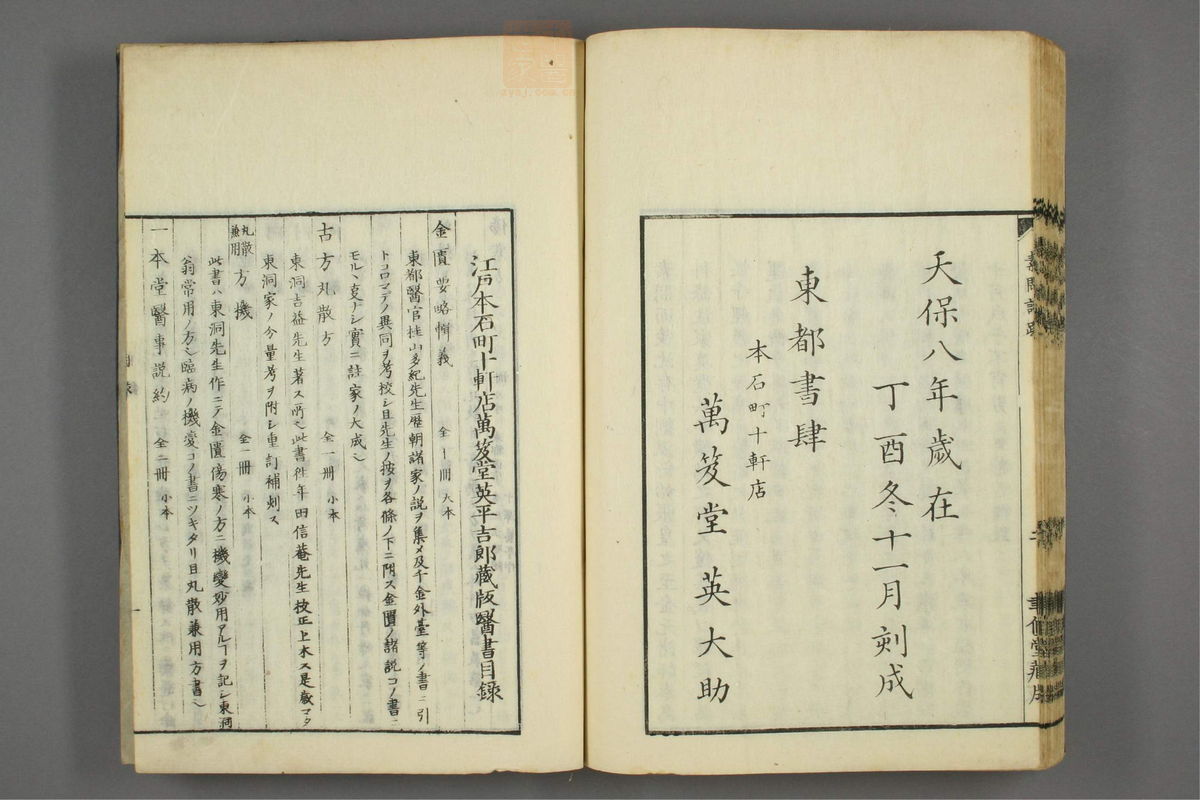 天保八年歲在
丁酉冬十一月刻成
東都書肆
本石町十軒店
萬笈堂 英大助
江戸本石町十軒店萬笈堂英平吉郎蔵版醫書目錄
金匱要略輯義 全十冊 大本
東都醫官桂山多紀先生歴朝諸家ノ説ヲ集メ及千金外臺等ノ書ニ引
トコロマテノ異同ヲ考校シ且先生ノ按ヲ各條ノ下ニ附ス金匱ノ諸説コノ書ニ
モルヽ叓ナシ實ニ註家ノ大成也
古方丸散方 全一冊 小本
東洞吉益先生著ス所也此書往年田信菴先生技正上木ス是歲マタ
東洞家ノ今量考ヲ附シ重訂補刻ス
丸散兼用方機 全一冊 小本
此書ハ東洞先生作ニテ金匱傷寒ノ方ニ機變妙用アルヿヲ記シ東洞
翁常用ノ方也臨病ノ機変コノ書ニツキタリ且丸散兼用方書也
一本堂醫事説約 全二冊 小本